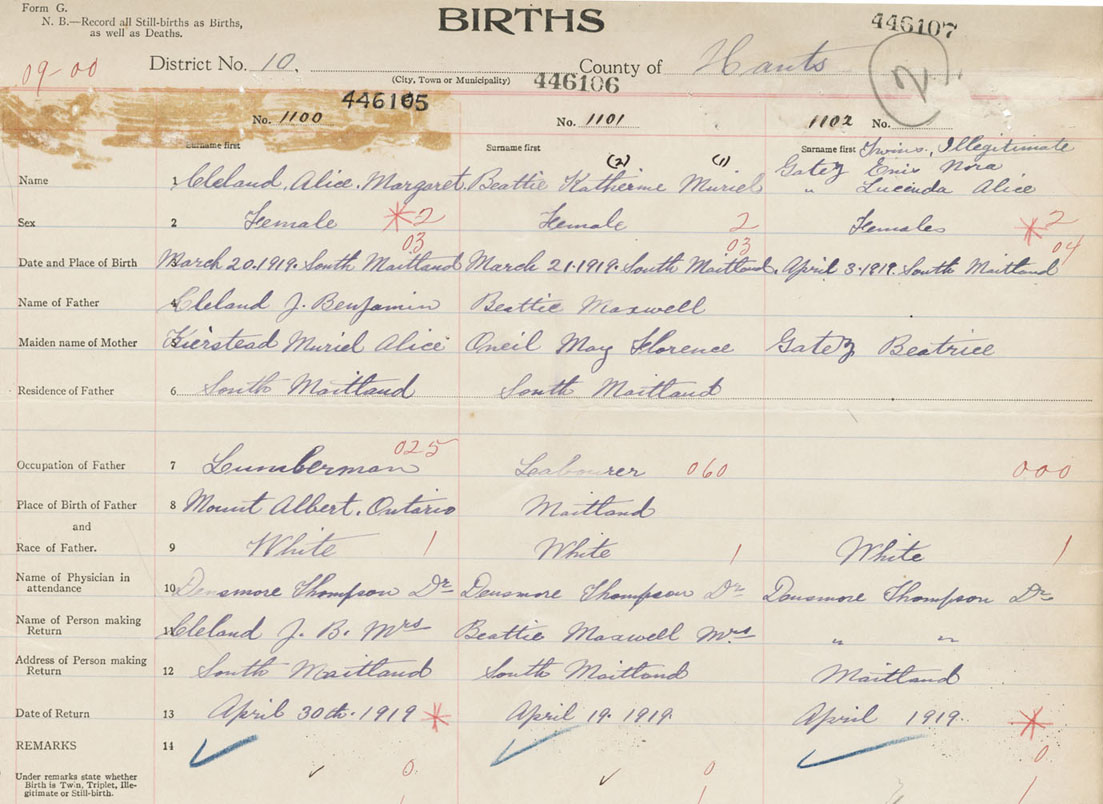 Form G.
N. B.—Record all Still-births as Births,
as well as Deaths.
BIRTHS
446107
09-00
District No. 10,
County of Hants
2
(City, Town or Municipality)
446105
446106
No. 1100
No. 1101
1102 No.
Surname first
Surname first
Surname first Twins, Illegitimate
(2) (1)
Name 1 Cleland, Alice, Margaret Beattie Katherine Muriel Gatez Enix Nora
" Lucinda Alice
Sex 2 Female *2 Female 2 Females *2
03 03 04
Date and Place of Birth 3 March 20.1919. South Maitland March 21.1919. South Maitland. April 3.1919. South Maitland
Name of Father 4 Cleland J. Benjamin Beattie Maxwell
Maiden name of Mother 5 Kierstead Muriel Alice Oneil May Florence Gatez Beatrice
Residence of Father 6 South Maitland South Maitland
025
Occupation of Father 7 Lumberman Leabourer 060 000
Place of Birth of Father 8 Mount Albert. Ontario Maitland
and
Race of Father. 9 White 1 White 1 White 1
Name of Physician in
attendance 10 Densmore Thompson Dr Densmore Thompson Dr Densmore Thompson Dr
Name of Person making
Return 11 Cleland J. B. Mrs Beattie Maxwell Mrs " "
Address of Person making
Return 12 South Maitland South Maitland Maitland
Date of Return 13 April 30th. 1919 * April 19. 1919. April 1919. *
REMARKS 14
0 0 0
Under remarks state whether
Birth is Twin, Triplet, Ille-
gitimate or Still-birth.
1 1 1